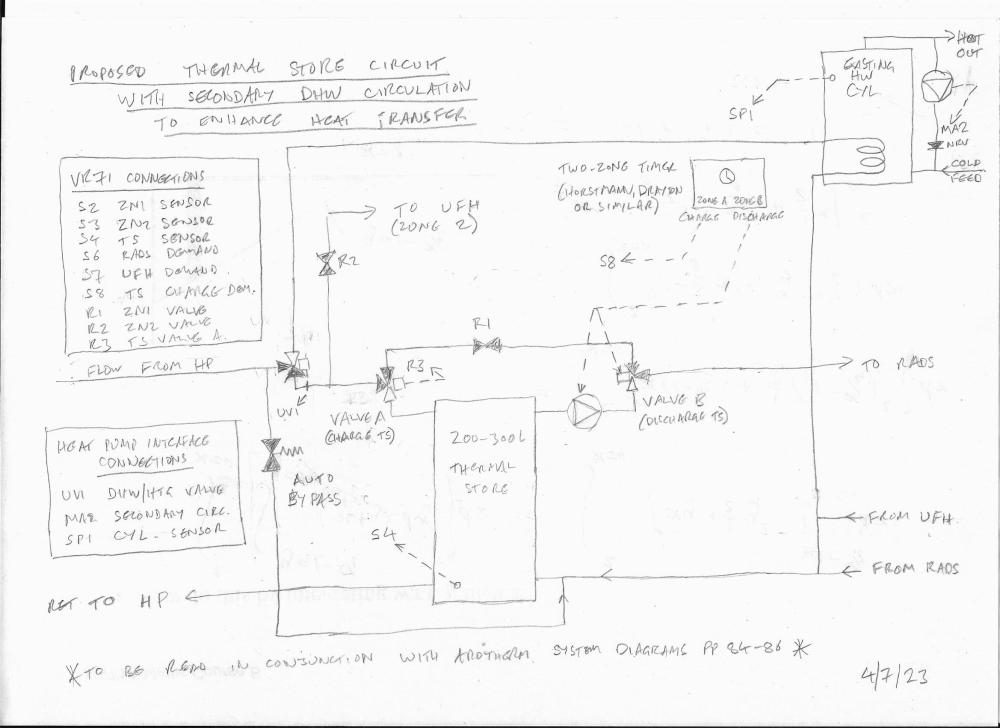 PROPOSED THERMAL STORE CIRCUIT
WITH SECONDARY DHW CIRCULATION
TO ENHANCE HEAT TRANSFER
HOT
OUT
EXISTING
HW
CYL
SP1
MA2
NRV
COLD
FEED
VR71 CONNECTIONS
S2 ZN1 SENSOR
S3 ZN2 SENSOR
S4 TS SENSOR
S6 RADS DEMAND
S7 UFH DEMAND
S8 TS CHARGE DEM.
R1 ZN1 VALVE
R2 ZN2 VALVE
R3 TS VALVE A.
TWO-ZONE TIMER
(HORSTMANN, DRAYTON
OR SIMILAR)
ZONE A ZONE B
CHARGE DISCHARGE
TO UFH
(ZONE 2)
R2
S8
R1
FLOW FROM HP
R3
TO RADS
UV1
VALVE A
(CHARGE TS)
VALVE B
(DISCHARGE TS)
HEAT PUMP INTERFACE
CONNECTIONS
UV1 DHW/HTG VALVE
MA2 SECONDARY CIRC.
SP1 CYL. SENSOR
AUTO
BYPASS
200-300L
THERMAL
STORE
S4
FROM UFH.
FROM RADS
RET TO HP
*TO BE READ IN CONJUNCTION WITH AROTHERM SYSTEM DIAGRAMS PP 84-86 *
4/7/23